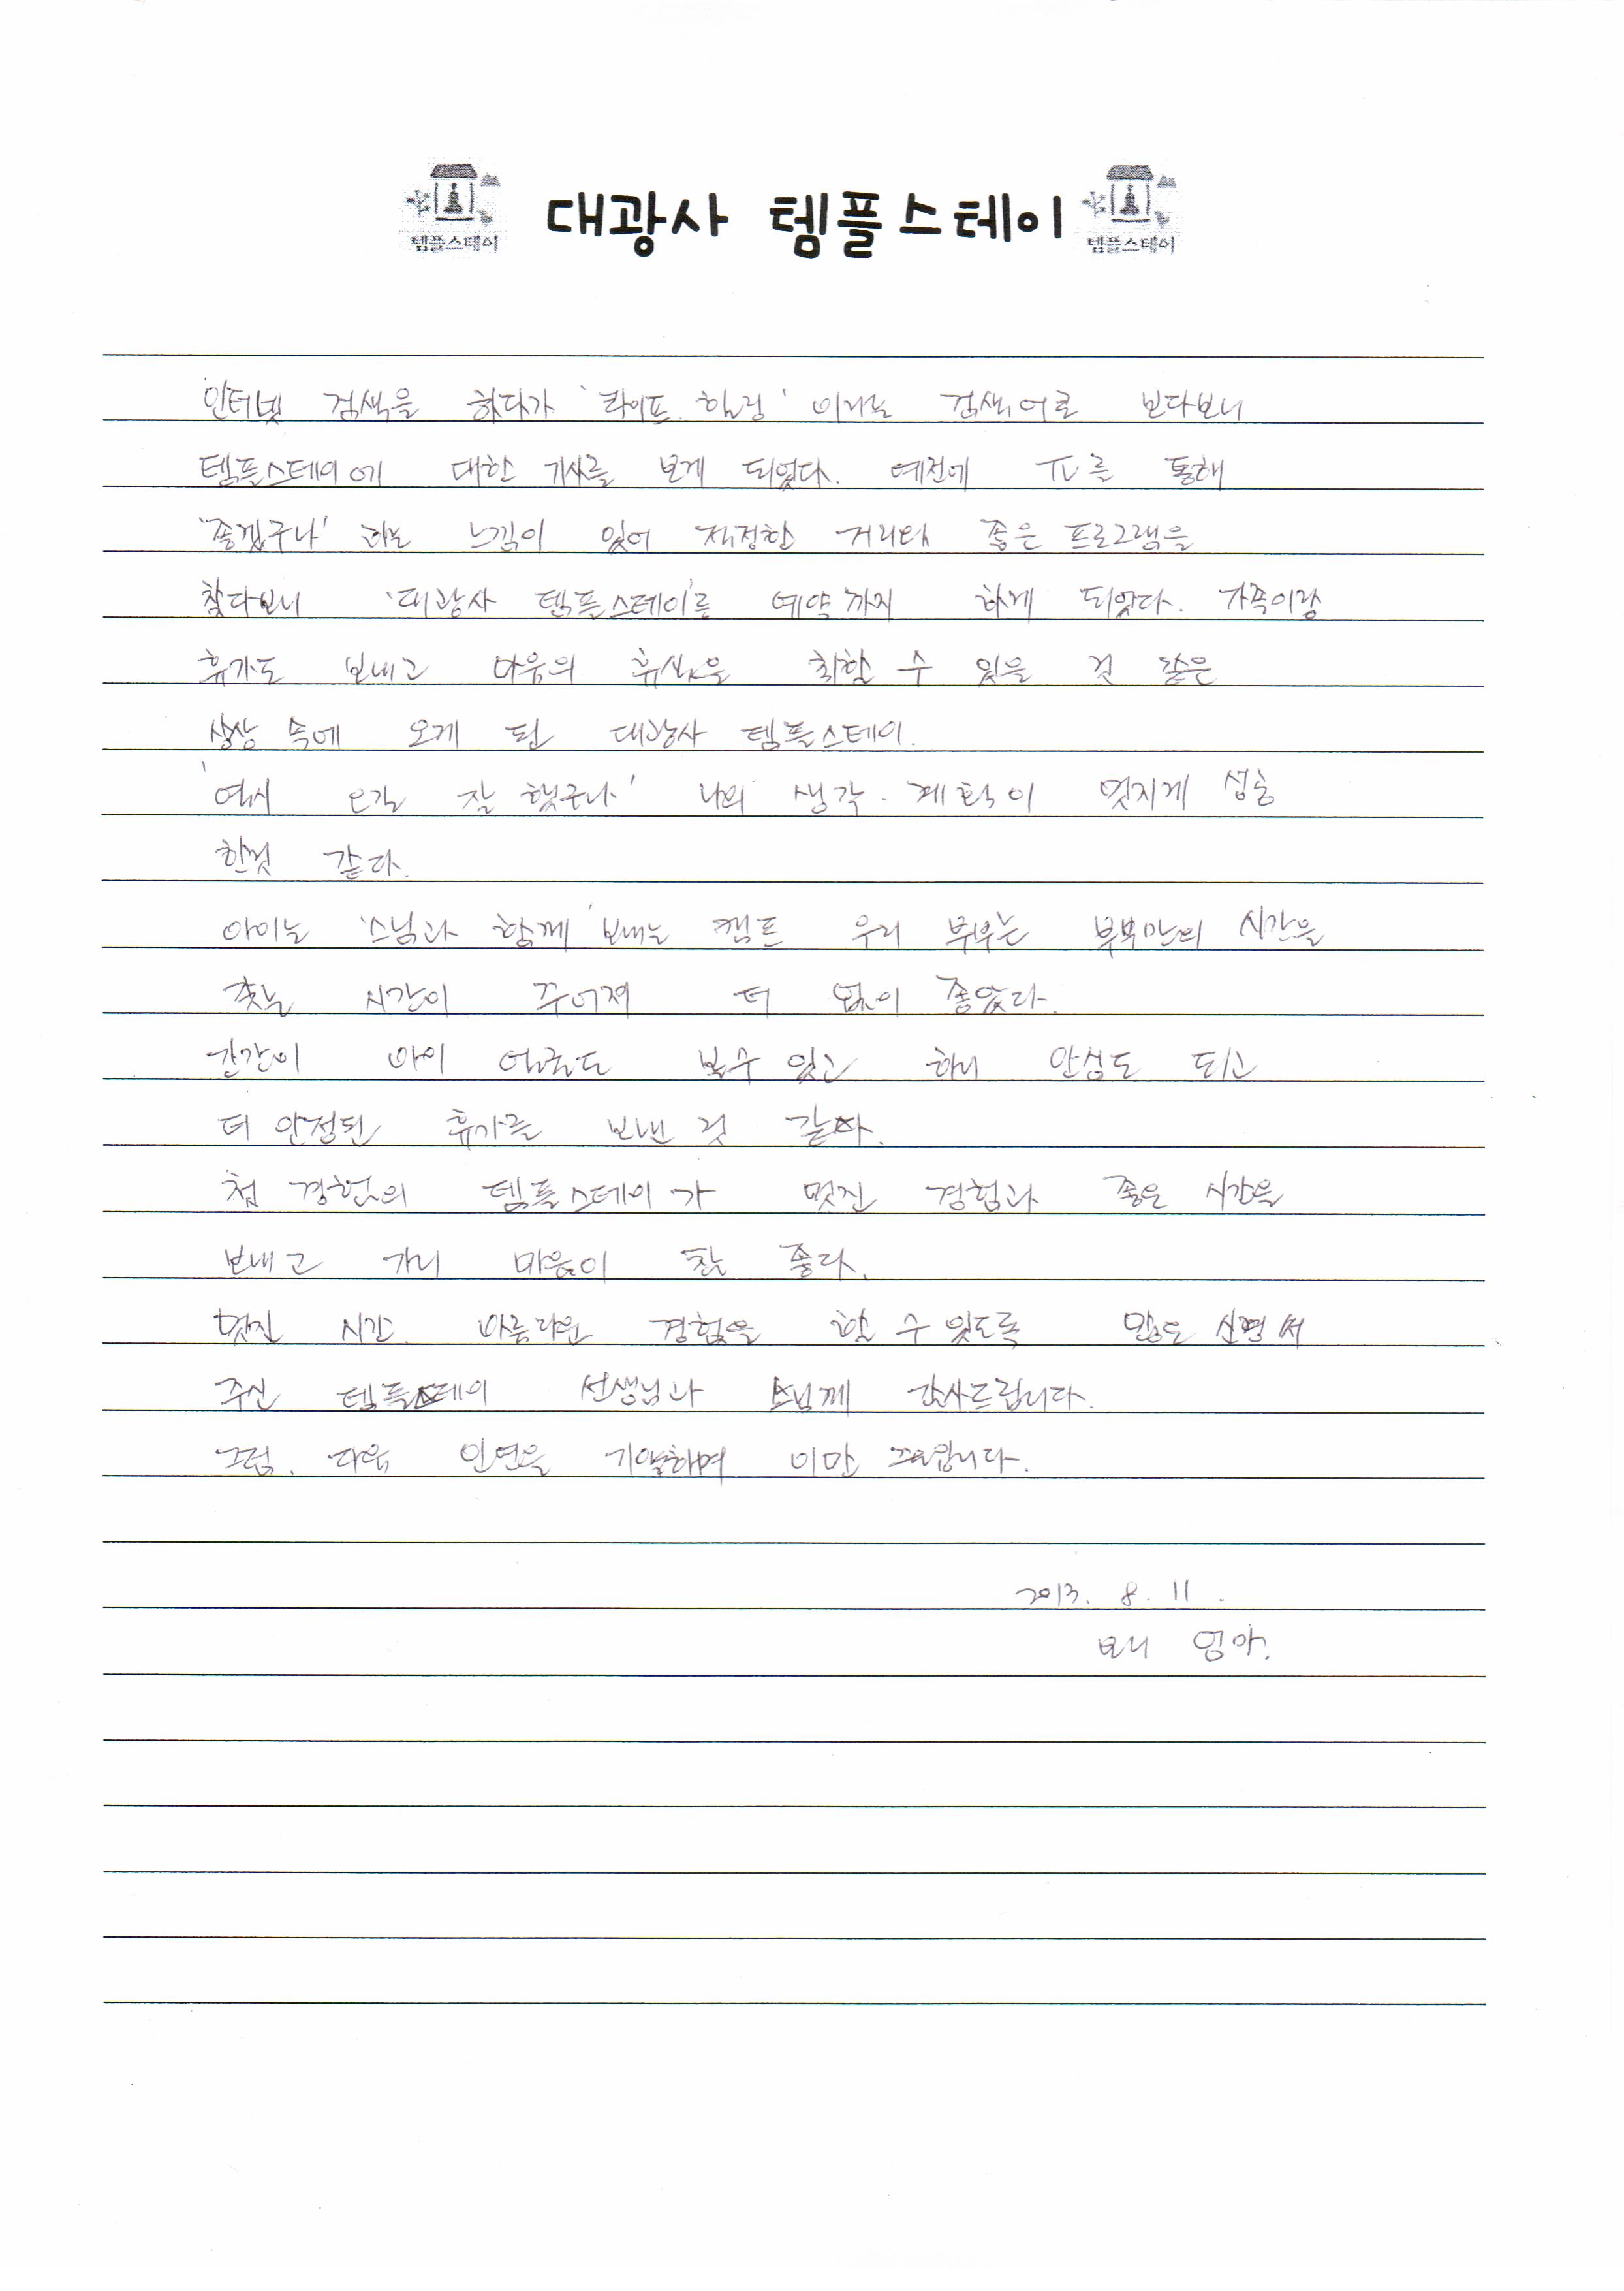 템플스테이 대광사 템플스테이 템플스테이
인터넷 검색을 하다가 '라이프 힐링' 이라는 검색어로 보다보니
템플스테이에 대한 기사를 보게 되었다. 예전에 TV를 통해
'좋겠구나' 하는 느낌이 있어 적정한 거리와 좋은 프로그램을
찾다보니 '대광사 템플스테이'를 예약까지 하게 되었다. 가족이랑
휴가도 보내고 마음의 휴식을 취할 수 있을 것 같은
상상 속에 오게 된 대광사 템플스테이.
'역시 오길 잘 했구나' 나의 생각. 계획이 멋지게 성공
한것 같다.
아이는 '스님과 함께' 보내는 캠프 우리 부부는 부부만의 시간을
찾는 시간이 주어져 더 없이 좋았다.
간간이 아이 얼굴도 볼수 있고 하니 안심도 되고
더 안정된 휴가를 보낸 것 같다.
첫 경험의 템플스테이가 멋진 경험과 좋은 시간을
보내고 가니 마음이 참 좋다.
멋진 시간. 아름다운 경험을 할 수 있도록 써
주신 템플스테이 선생님과 스님께 감사드립니다.
그럼. 다음 인연을 기약하며 이만
2013. 8. 11.
보니 엄마.